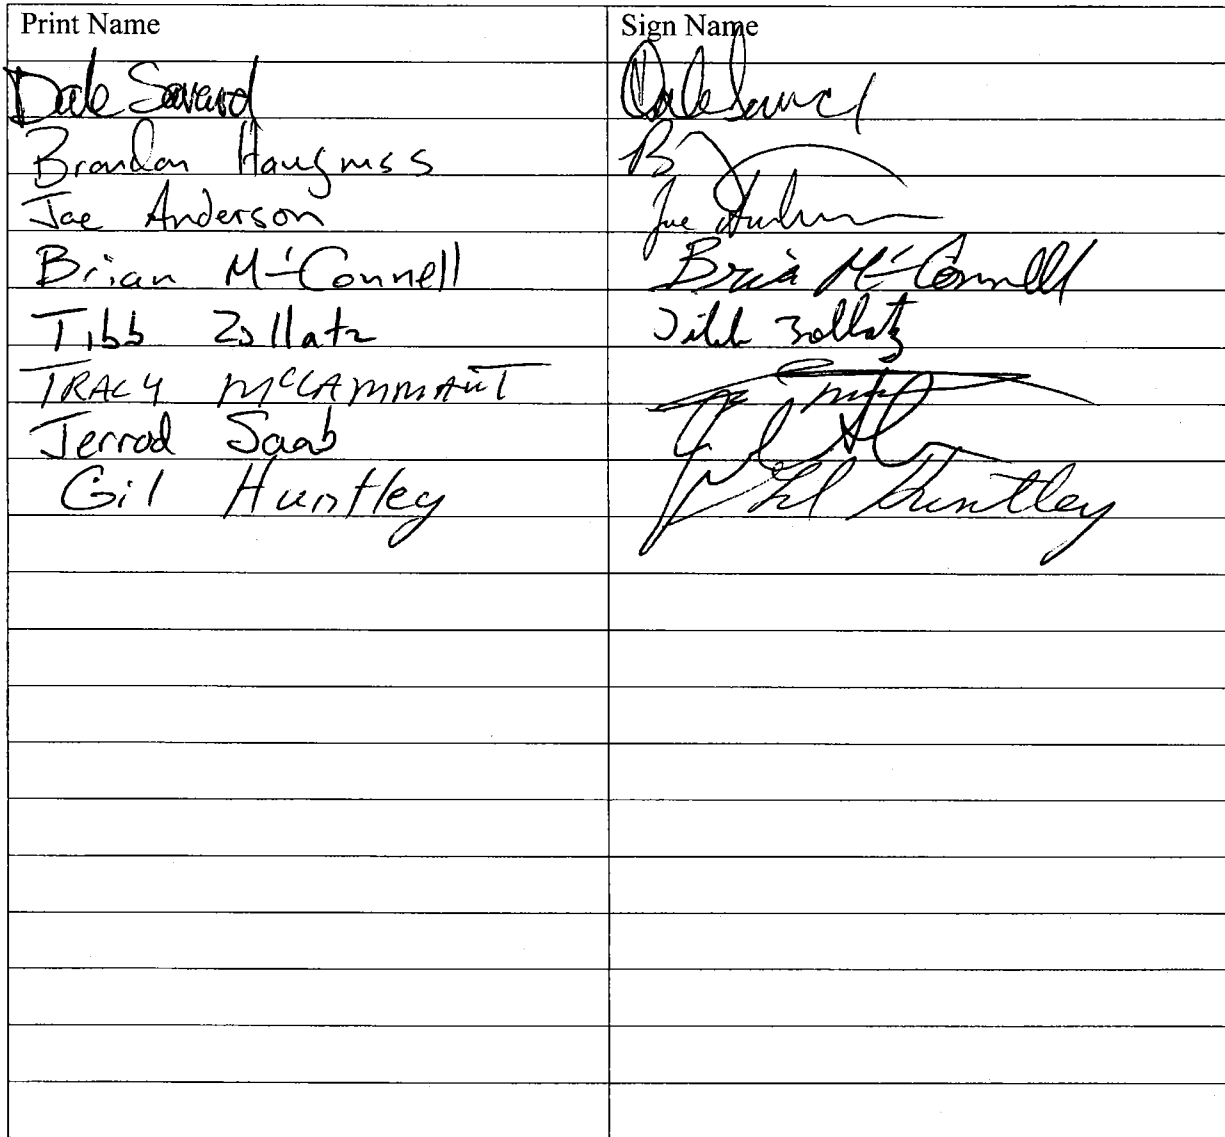 Print Name Sign Name
Dale Savard Dale Savard
Brandon B
Joe Anderson Joe
Brian McConnell Brian McConnell
Tibb Zollatz Tibb Zollatz
TRACY McCAMMANT
Jerrod Saab
Gil Huntley Gil Huntley